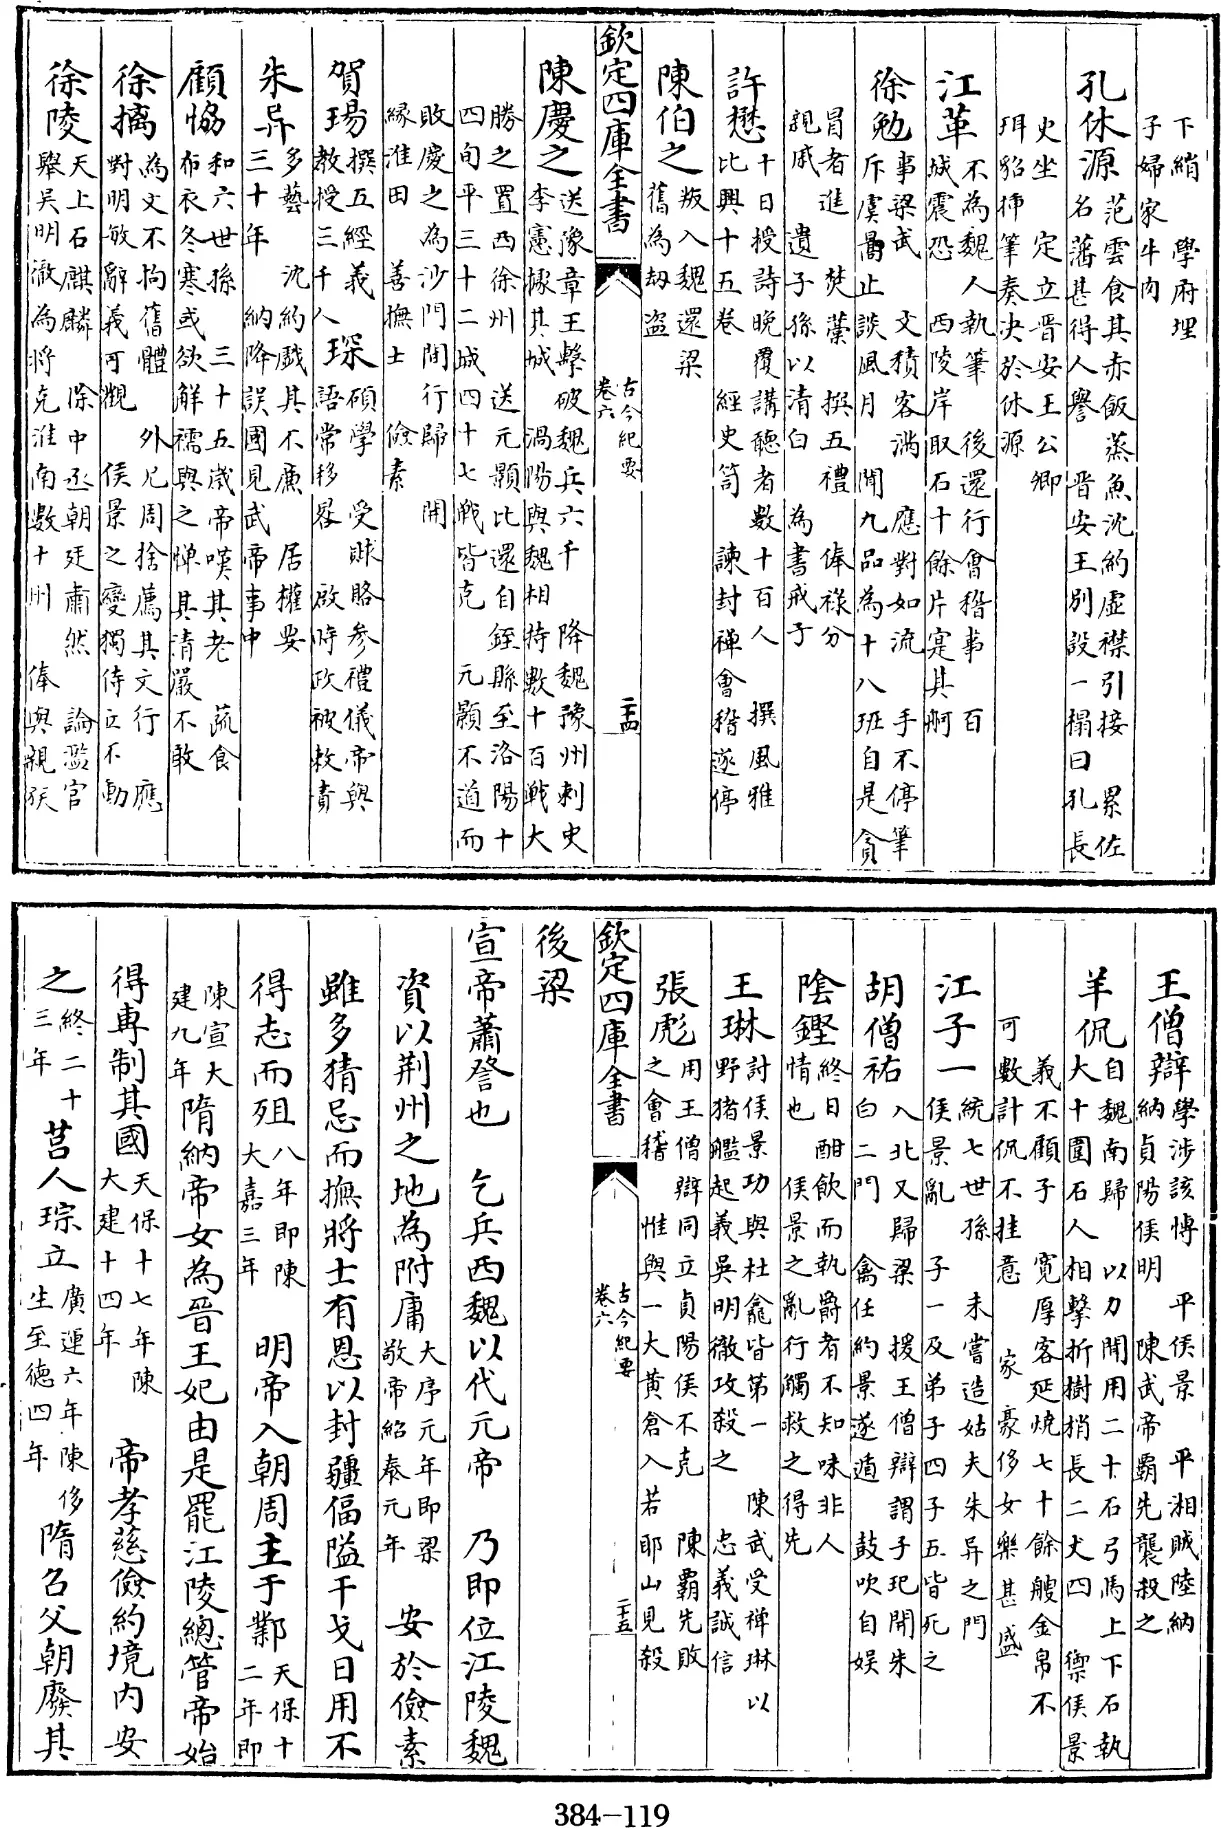 下綃　學府埋
子婦家牛肉
孔休源范雲食其赤飯蒸魚沈約虛襟引接　累佐
名藩甚得人譽　晉安王別設一榻曰孔長
史坐　定立晉安王公卿
珥貂揷筆奏决於休源
江革不為魏人執筆　後還行會稽事　百
城震恐　西陵岸取石十餘片寔其舸
徐勉事梁武　文積客滿　應對如流　手不停筆
斥虞暠止談風月　聞九品為十八班自是貪
冒者進　焚藁　撰五禮　俸祿分
親戚　遺子孫以清白　為書戒子
許懋十日授詩晚覆講聽者數十百人　撰風雅
比興十五卷　經史笥　諫封禪會稽遂停
陳伯之叛入魏還梁
舊為刼盜
欽定四庫全書
古今紀要
卷六
二十四
陳慶之送豫章王繫破魏兵六千　降魏豫州刺史
李憲據其城　渦陽與魏相持數十百戰大
勝之置西徐州　送元顥比還自銍縣至洛陽十
四旬平三十二城四十七戰皆克　元顥不道而
敗慶之為沙門間行歸　開
縁淮田　善撫士　儉素
賀瑒撰五經義
教授三千人
琛碩學　受賕賂參禮儀帝與
語常移晷　啟時政被敕責
朱异多藝　沈約戲其不廉　居權要
三十年　納降誤國見武帝事中
顧恊和六世孫　三十五歲帝嘆其老　蔬食
布衣冬寒或欲解襦與之憚其清嚴不敢
徐摛為文不拘舊體　外兄周捨薦其文行　應
對明敏辭義可觀　侯景之變獨侍立不動
徐陵天上石麒麟　除中丞朝廷肅然　論濫官
舉吳明徹為將克淮南數十州　俸與親族
王僧辯學涉該博　平侯景　平湘賊陸納
納貞陽侯明　陳武帝霸先襲殺之
羊侃自魏南歸　以力聞用二十石弓馬上下石執
大十圍石人相擊折樹梢長二丈四　禦侯景
義不顧子　寛厚客延燒七十餘艘金帛不
可數計侃不挂意　家豪侈女樂甚盛
江子一統七世孫　未嘗造姑夫朱异之門
侯景亂　子一及弟子四子五皆死之
胡僧祐入北又歸梁　援王僧辯謂子玘開朱
白二門　禽任約景遂遁　鼓吹自娛
陰鏗終日酣飲而執爵者不知味非人
情也　侯景之亂行觴救之得先
王琳討侯景功與杜龕皆第一　陳武受禪琳以
野猪艦起義吳明徹攻殺之　忠義誠信
張彪用王僧辯同立貞陽侯不克　陳霸先敗
之會稽　惟與一犬黄倉入若耶山見殺
欽定四庫全書
古今紀要
卷六
二十五
後梁
宣帝蕭詧也　乞兵西魏以代元帝　乃即位江陵魏
資以荆州之地為附庸大序元年即梁
敬帝紹泰元年
安於儉素
雖多猜忌而撫將士有恩以封疆偪隘干戈日用不
得志而殂八年即陳
大嘉三年
明帝入朝周主于鄴天保十
二年即
陳宣大
建九年
隋納帝女為晉王妃由是罷江陵總管帝始
得專制其國天保十七年陳
大建十四年
帝孝慈儉約境内安
之終二十
三年
莒人琮立廣運六年陳侈
生至德四年
隋召父朝廢其
384-119